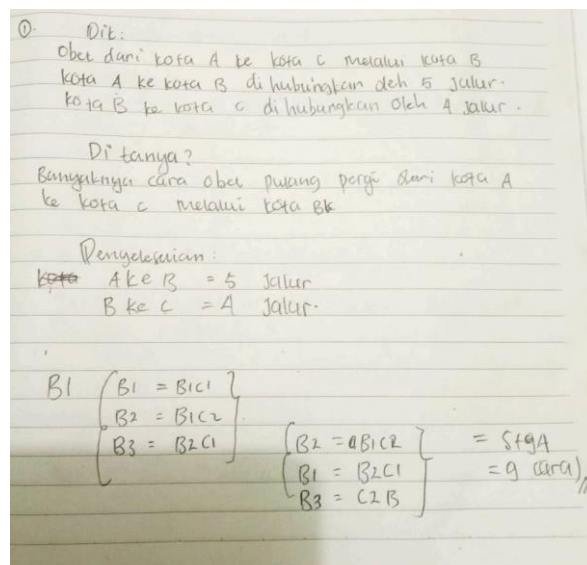 ①. Dit:
Obet dari kota A ke kota C melalui kota B
kota A ke kota B dihubungkan oleh 5 Jalur.
kota B ke kota C dihubungkan oleh 4 Jalur.
Ditanya?
Banyaknya cara obet pulang pergi dari kota A
ke kota C melalui kota B
Penyelesaian:
kota A ke B = 5 Jalur
B ke C = 4 Jalur.
B1
B1 = B1C1
B2 = B1C2
B3 = B2C1
B2 = B1C2
B1 = B2C1
B3 = C2B
= 5+4
= 9 cara